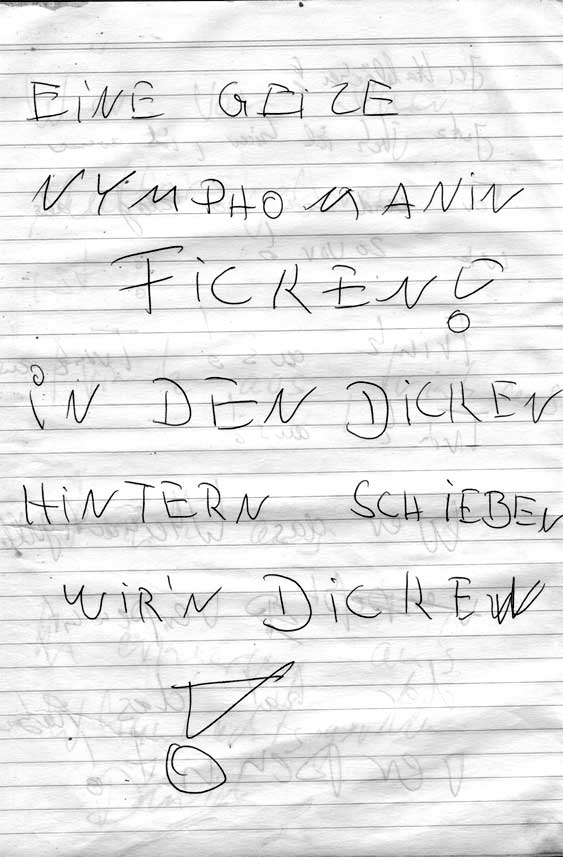 EiNE GEiZE
NYMPHOMANiN
FiCKEN!
iN DEN DiCKEN
HiNTERN SCHiEBEN
WiR'N DiCKEN
!